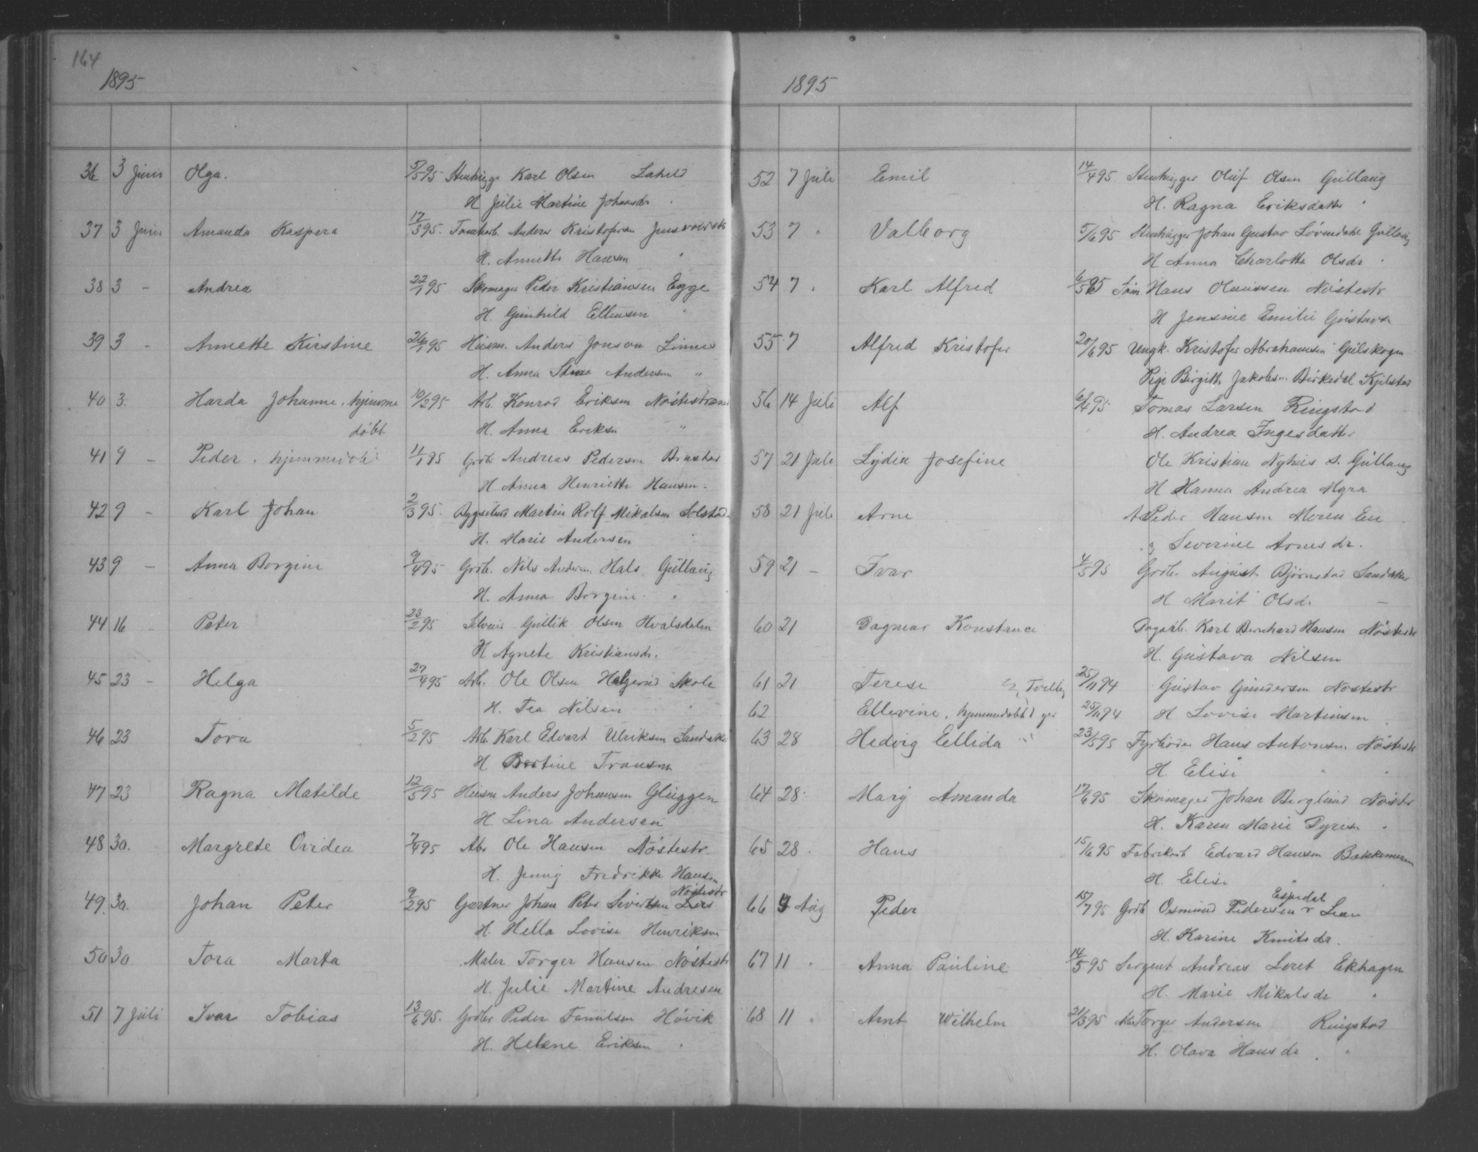 164
1895
36 3 Juni Olga. 5/5 95 Stenhugger Karl Olsen
H Julie Martine Johansdr
37 3 Juni Amanda Kaspera 17/3 95. Anders Kristofersen
H. Annette Hansen "
38 3 - Andrea 22/1 95 Skomager Peder Kristiansen Egge
H Gunhild Ellensen "
39 3 - Annette Kirstine 26/1 95 Husm. Anders Jonson Linnes
H. Anna Stine Andersen "
40 3. Harda Johanne. hjemme 10/3 95 Arb. Konrad Eriksen Nøstestranden
døbt H. Anna Eriksen "
41 9 - Peder. hjemmedøbt 11/1 95 Grdb. Andreas Pedersen
H Anna Henriette Hansen.
42 9 - Karl Johan 2/3 95. Martin Rolf Mikalsen Solstad
H. Marie Andersen "
43 9 - Anna Borgine 9/4 95 Grdb. Nils Andersen Hals Gullaug
H. Anna Borgine "
44 16 - Peter 23/2 95 Gullik Olsen Hvalsdalen
H Agnete Kristiansdr.
45 23 - Helga 27/4 95 Arb. Ole Olsen Helgerud Skole
H. Tea Nilsen
46 23 Tora 5/2 95 Arb. Karl Edvart Ulriksen Sandaker
H Bertine Transen
47 23 Ragna Matilde 12/5 95 Husm Anders Johansen Gluggen
H. Lina Andersen
48 30. Margrete Ovidea 7/4 95 Arb Ole Hansen Nøstestr.
H. Jenny Fredrikke Hansen
49. 30. Johan Peter 9/2 95 Gartner Johan Peter Sivertsen Lier Nøstestr
H Hella Lovise Henriksen
50 30 Tora Marta Maler Torger Hansen Nøstestr
H. Julie Martine Andresen
51 7 Juli Ivar Tobias 13/6 95. Grdbr Peder Høvik
H. Helene Eriksen "
1895
52 7 Juli Emil 14/4 95 Stenhugger Oluf Olsen Gullaug
H. Ragna Eriksdatter "
53 7 " Valborg 5/6 95 Stenhugger Johan Gustav Løvendahl Gullaug
H Anna Charlotte Olsdr "
54 7 . Karl Alfred 6/5 95 Hans Olausen Nøstestr
H Jensine Emilie Gustavsen
55 7 Alfred Kristofer 20/6 95 Ungk. Kristofer Abrahamsen Gulskogen
Pige Birgitte Jakobsen Birkedal Kjelstad
56 14 Juli Alf 6/4 95 Tomas Larsen Ringstad
H. Andrea Ingesdatter
57 21 Juli Lydia Josefine Ole Kristian Gullaug
H Hanna Andrea
58 21 Juli Arne Peder Hansen Moren
Severine Arnesdr.
59 21 - Ivar 4/5 95 Grdbr August Bjørnstad Sandaker
H Marit Olsdr -
60 21 Dagmar Konstanse Dagarb. Karl Bernhard Hansen Nøstestr
H. Gustava Nilsen
61 21 Terese Tvilling 25/11 94 Gustav Gundersen Nøstestr
62 Ellevine, hjemmedøbt 25/11 94 H Lovise Martinsen .
63 28 Hedvig Ellida " 23/5 95 Fyrbøder Hans Antonsen Nøstestr
H Elise " "
64 28. Mary Amanda 17/6 95 Skomager Johan Berglund Nøstestr
H. Karen Marie "
65 28. Hans 15/6 95 Fabrikarb Edvard Hansen Bakkemoren
H. Elise "
66 4 Aug Peder 15/7 95 Grdb Osmund Pedersen Espedal v Lian
H. Karine Knutsdr.
67 11 . Anna Pauline 14/5 95 Sergent Andreas Loret Ekhagen
H. Marie Mikalsdr "
68 11 . Arnt Wilhelm 21/3 95 Torger Andersen Ringstad
H. Olava Hansdr . "